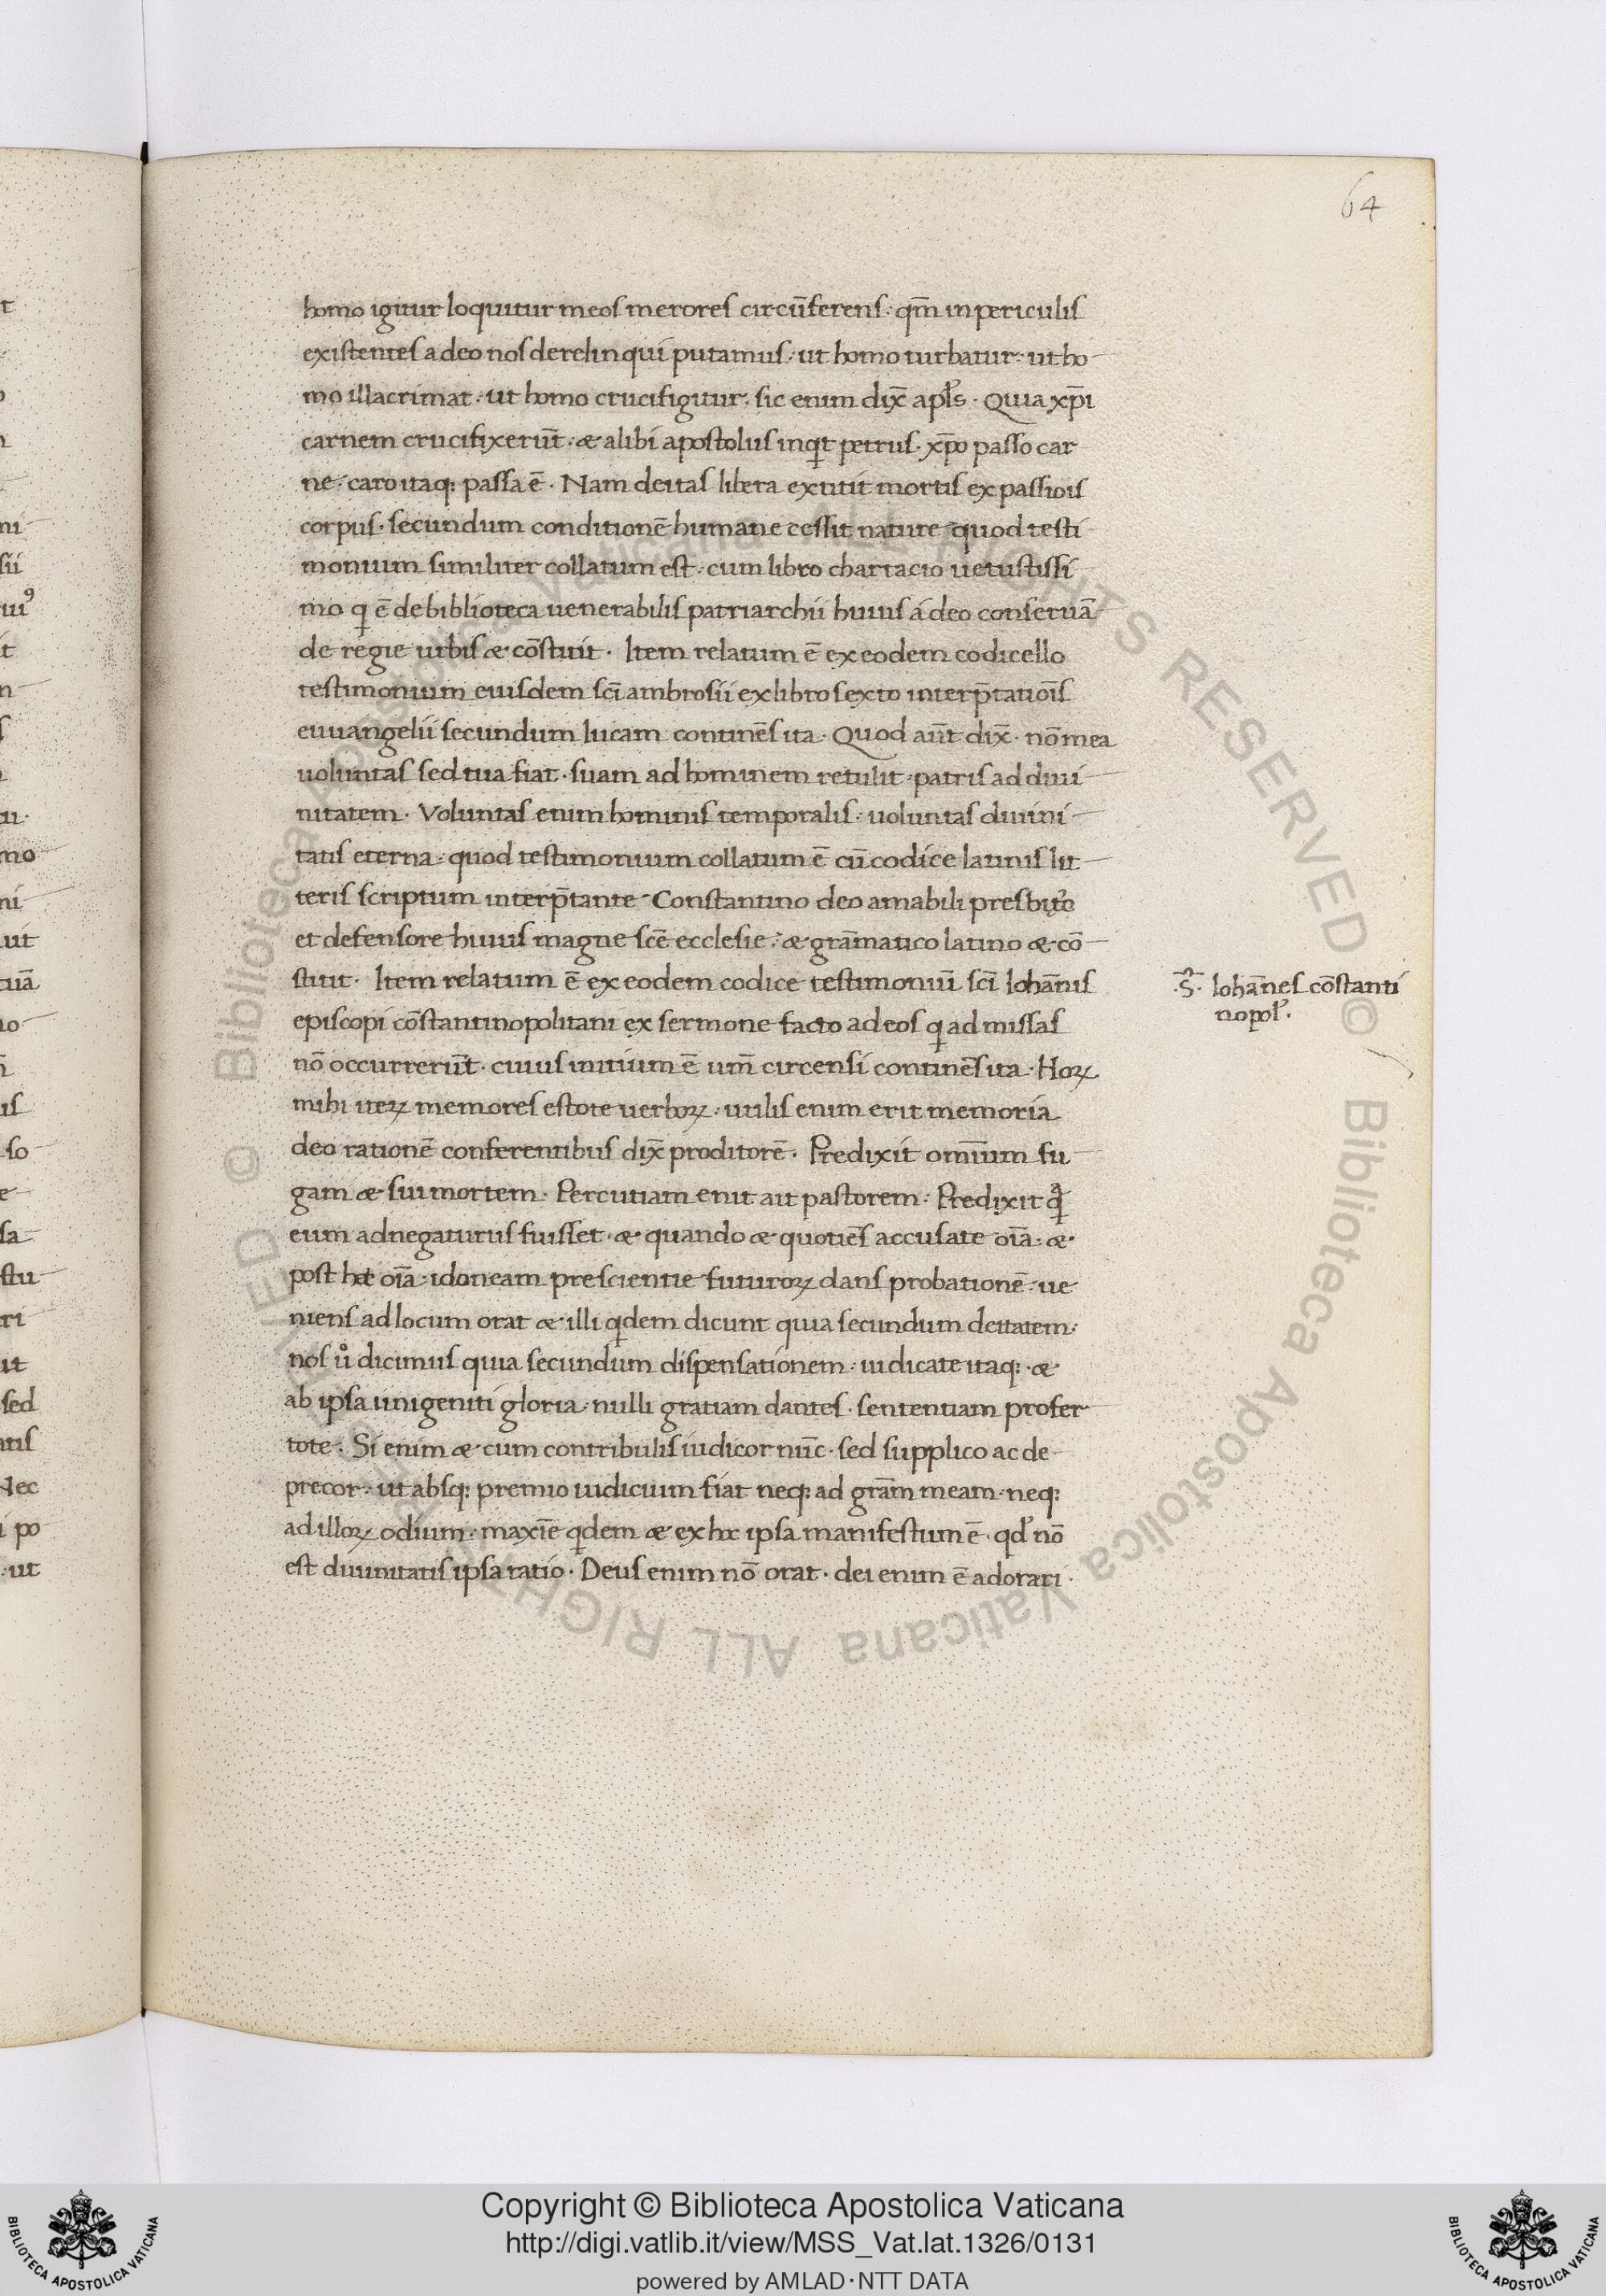 64
homo igitur loquitur meos merores circūferens: qm̄ in periculis
existentes a deo nos derelinqui putamus: ut homo turbatur: ut ho
mo illacrimat: ut homo crucifigitur. sic enim dix̄ apl's. Quia xp̄i
carnem crucifixerūt: & alibi apostolus inqit petrus. xp̄o passo car
ne: caro itaq: passa ē. Nam deitas libera extitit mortis ex passiōis
corpus. secundum conditionē humane cessit nature quod testi
monium similiter collatum est: cum libro chartacio uetustissi
mo q ē de biblioteca uenerabilis patriarchii huius á deo conseruā
de regie urbis & cōstitit. Item relatum ē ex eodem codicello
testimonium eiusdem scī ambrosii ex libro sexto interp̄tatiōīs
euuangelii secundum lucam continēs ita. Quod aūt dix̄. nō mea
uoluntas sed tua fiat. suam ad hominem retulit. patris ad diui
nitatem. Voluntas enim hominis temporalis: uoluntas diuini
tatis eterna: quod testimonium collatum ē cū codice latinis lit
teris scriptum interp̄tante Constantino deo amabili presbit'o
et defensore huius magne scē ecclesie: & grāmatico latino & cō
stitit. Item relatum ē ex eodem codice testimoniū scī Iohānis
episcopi cōstantinopolitani ex sermone facto ad eos q ad missas
nō occurrerūt. cuius initium ē um̄ circensi continēs ita. Horꝝ
mihi iterꝝ memores estote uerborꝝ. utilis enim erit memoria
deo rationē conferentibus dix̄ proditorē. Predixit omīum fu
gam & sui mortem. Percutiam enit ait pastorem: Predixit qa
eum adnegaturus fuisset. & quando & quotiēs accusate oīa: &
post hec oīa: idoneam prescientie futurorꝝ dans probationē: ue
niens ad locum orat & illi qdem dicunt quia secundum deitatem:
nos uo dicimus quia secundum dispensationem: iudicate itaq: &
ab ipsa unigeniti gloria: nulli gratiam dantes. sententiam profer
tote: Si enim & cum contribulis iudicor nūc. sed supplico ac de
precor: ut absq: premio iudicium fiat neq: ad grām meam. neq:
ad illorꝝ odium. maxīe qdem & ex hoc ipsa manifestum ē. qd' nō
est diuinitatis ipsa ratio. Deus enim nō orat. dei enim ē adorari.
.S̄. Iohānes cōstanti
nopol'.
Copyright © Biblioteca Apostolica Vaticana
http://digi.vatlib.it/view/MSS_Vat.lat.1326/0131
powered by AMLAD·NTT DATA